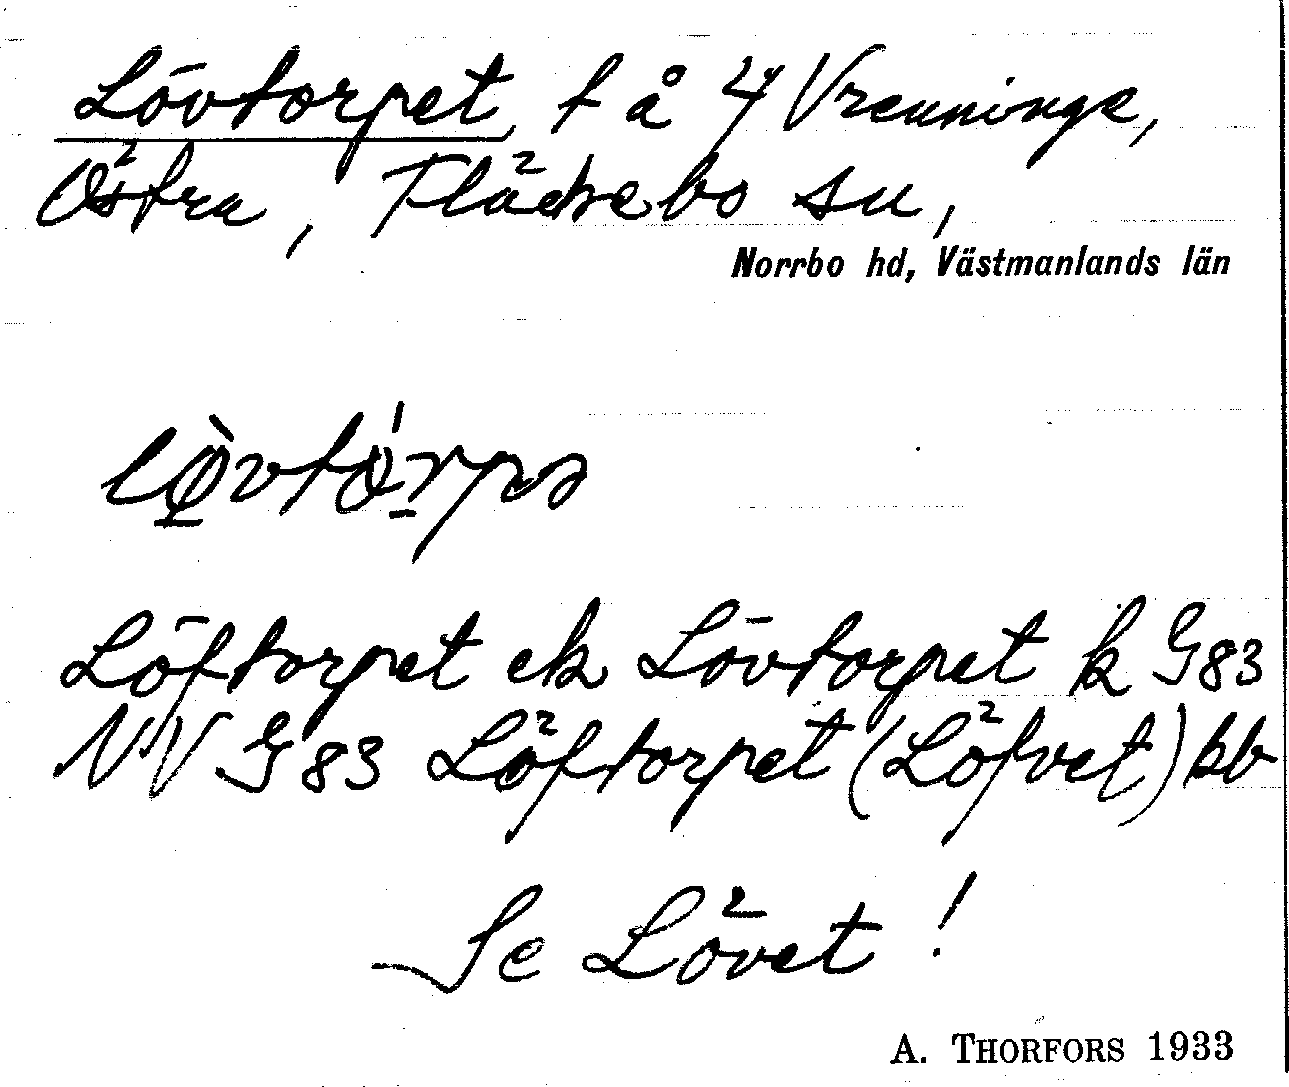 Lövtorpet, t å 4 Vrenninge,
Östra, Fläckebo sn,
Norrbo hd, Västmanlands län
lø̀vtórpə
Löftorpet ek Lövtorpet k G83
NV G83 Löftorpet (Löfvet) kb
Se Lövet!
A. THORFORS 1933